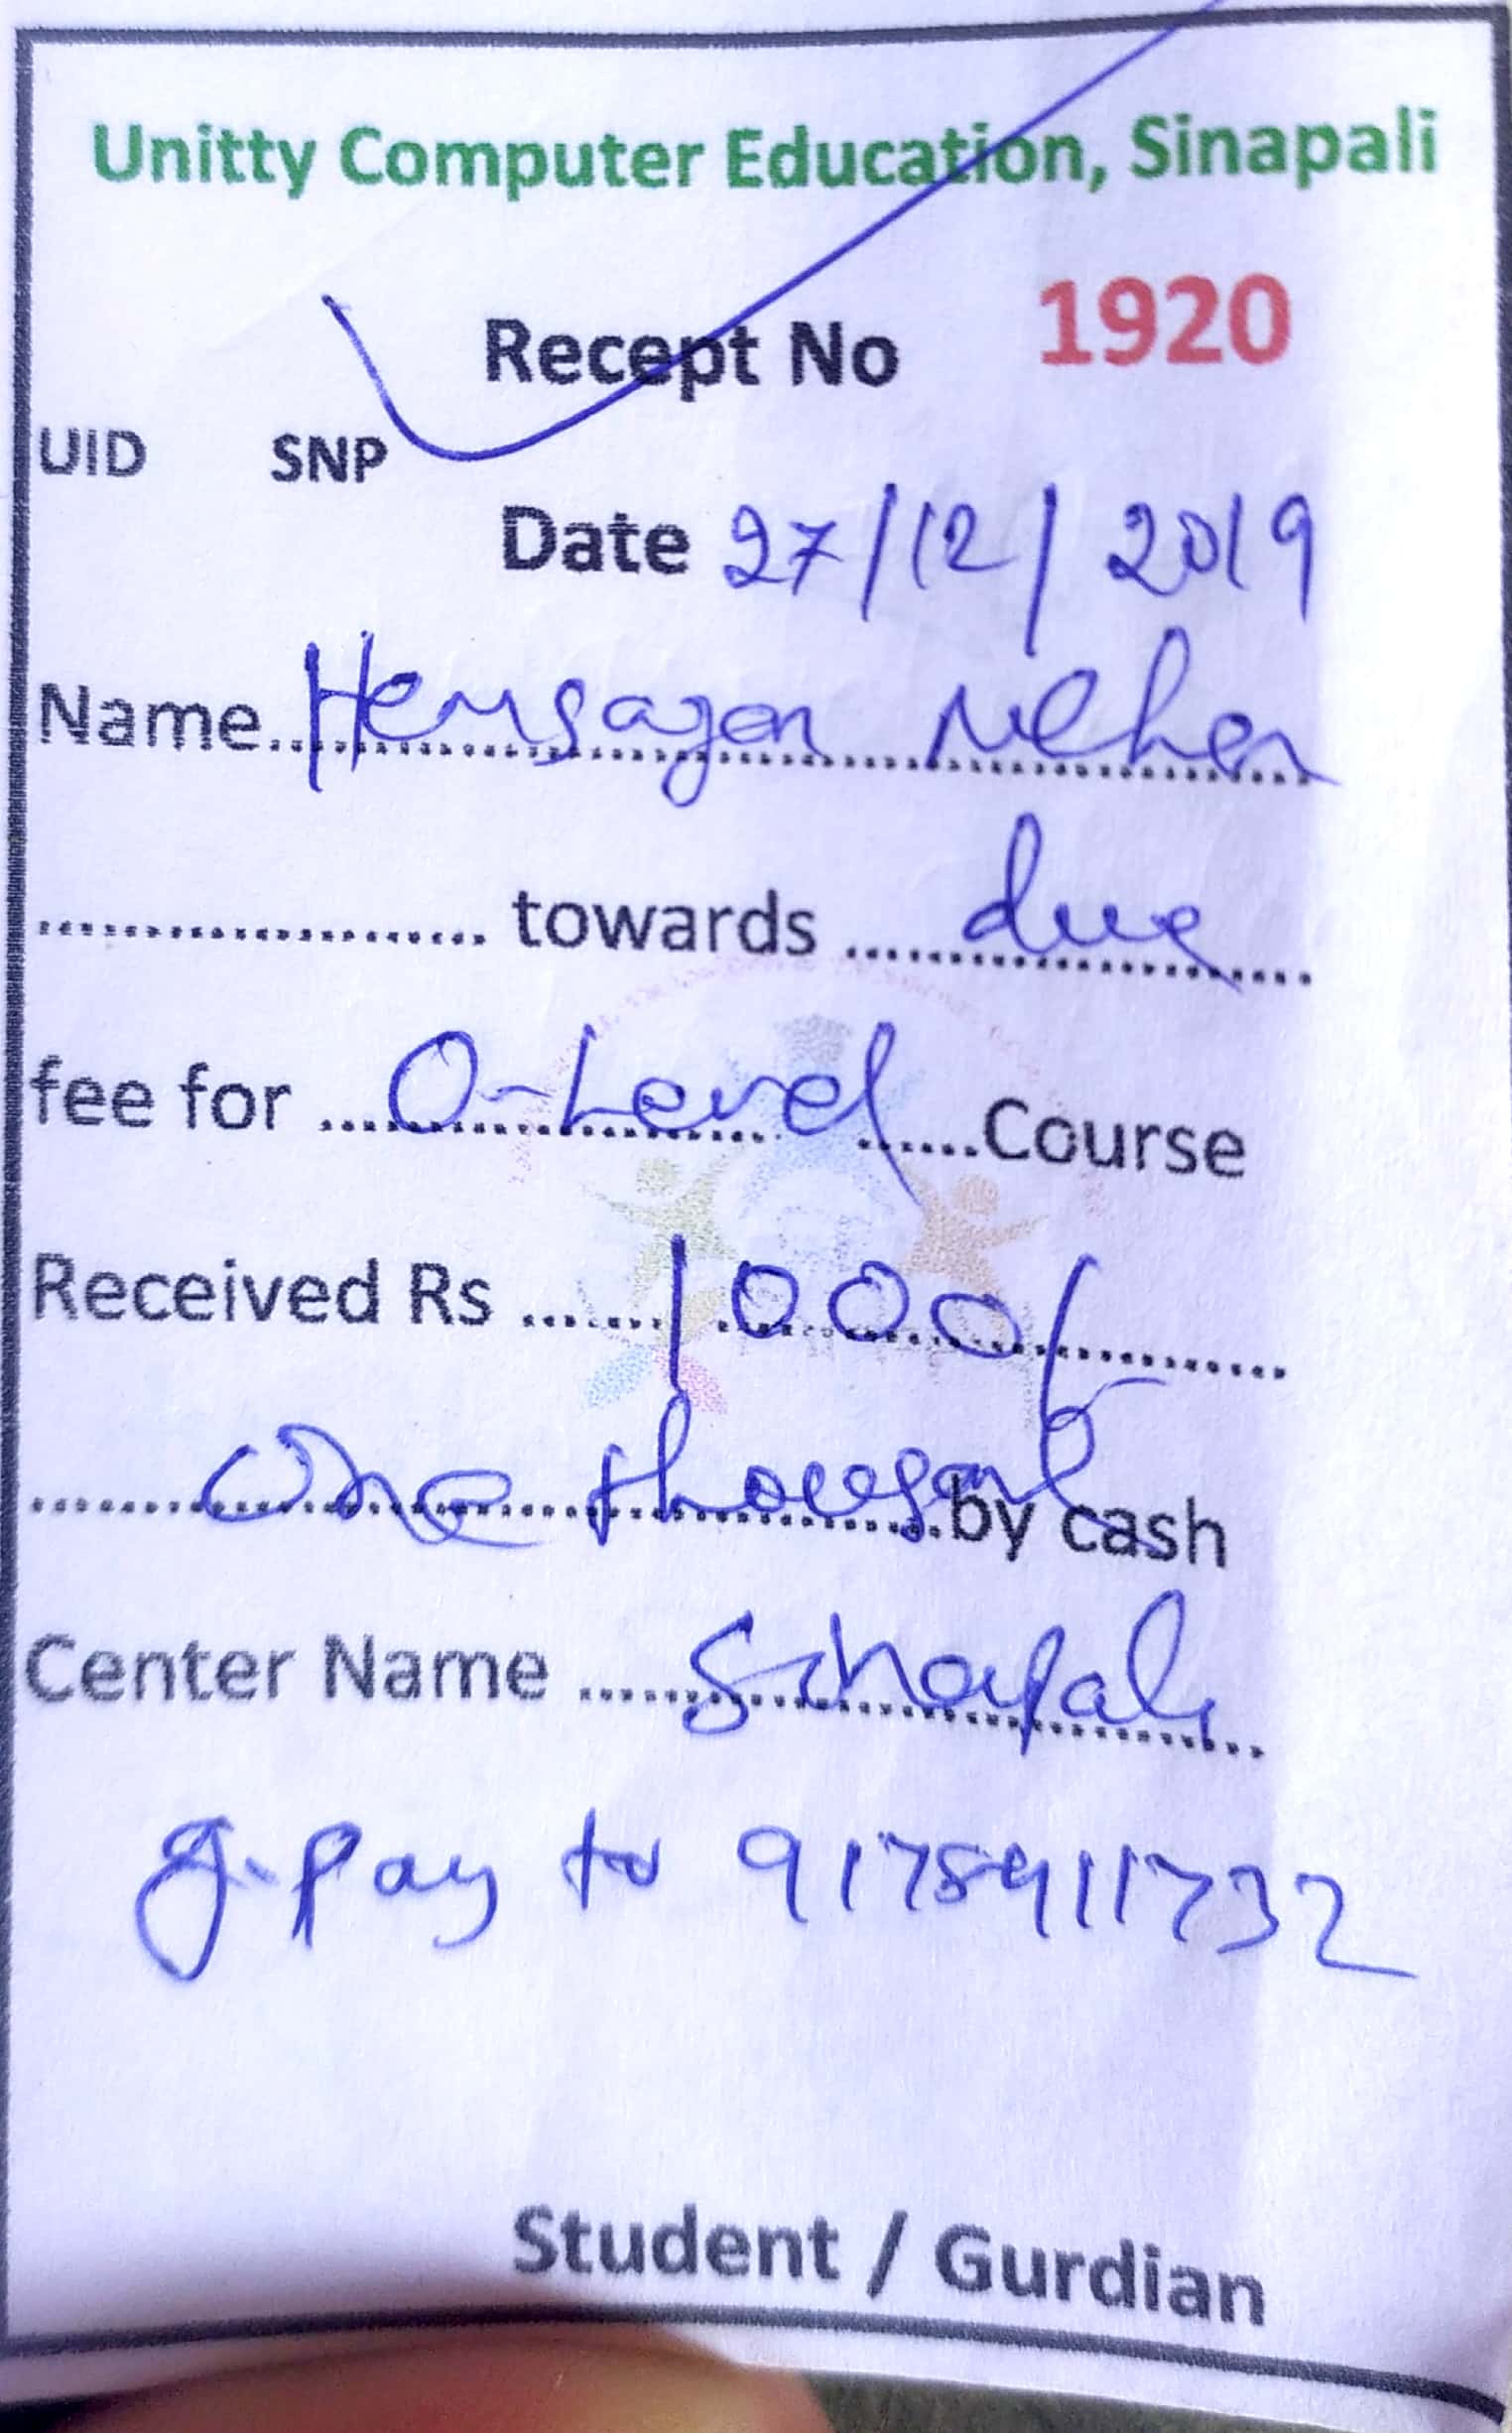 Unitty Computer Education, Sinapali
Recept No 1920
UID SNP
Date 27/12/2019
Name..Hemsagar Meher
.......................... towards ....due
fee for ....O-Level.......Course
Received Rs ......1000/-
........one thousand by cash
Center Name ......Sinapali
g-pay to 9178911732
Student / Gurdian